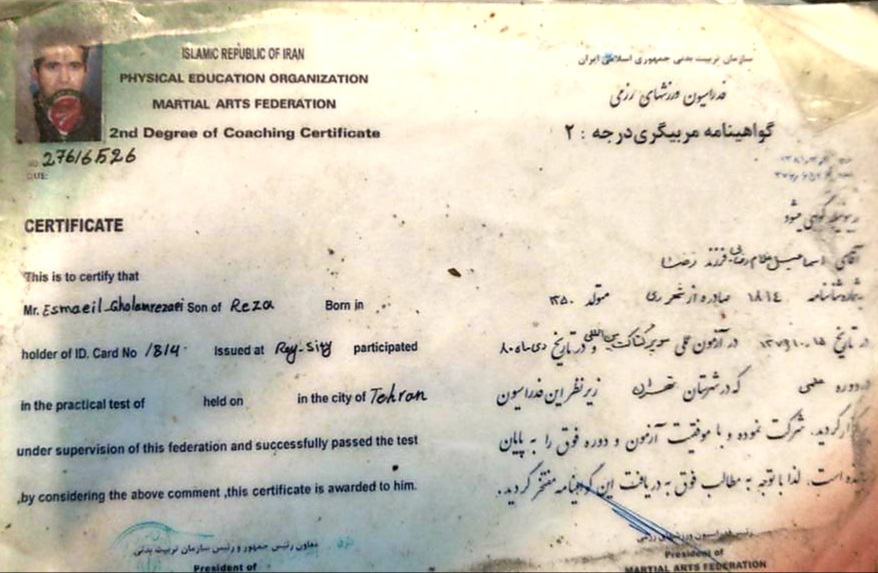 ISLAMIC REPUBLIC OF IRAN
PHYSICAL EDUCATION ORGANIZATION
MARTIAL ARTS FEDERATION
2nd Degree of Coaching Certificate
NO 27616526
DUE:
CERTIFICATE
This is to certify that
Mr. Esmaeil Gholamrezaei Son of Reza Born in
holder of ID. Card No 1814 Issued at Rey-Sity participated
in the practical test of held on in the city of Tehran
under supervision of this federation and successfully passed the test
,by considering the above comment ,this certificate is awarded to him.
معاون رئیس جمهور و رئیس سازمان تربیت بدنی
President of
سازمان تربیت بدنی جمهوری اسلامی ایران
فدراسیون ورزشهای رزمی
گواهینامه مربیگری درجه : ۲
گواهی میشود
آقای اسماعیل غلامرضایی فرزند رضا
شماره شناسنامه ۱۸۱۴ صادره از شهر ری متولد ۱۳۵۰
در تاریخ در آزمون سوپر کنتاکت بین‌المللی و در تاریخ
دوره علمی که در شهرستان تهران زیر نظر این فدراسیون
شرکت نموده و با موفقیت آزمون و دوره فوق را به پایان
است. لذا با توجه به مطالب فوق به دریافت این گواهینامه مفتخر گردید.
President of
MARTIAL ARTS FEDERATION